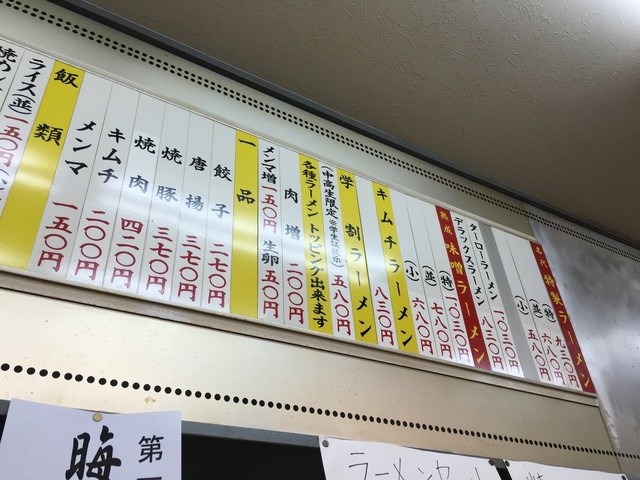 名代 特製ラーメン
(特) 九三〇円
(並) 六八〇円
(小) 五八〇円
ターローラーメン 一〇三〇円
デラックスラーメン 八三〇円
熟成 味噌ラーメン
(特) 一〇三〇円
(並) 七八〇円
(小) 六八〇円
キムチラーメン
八三〇円
学割ラーメン
(中高生限定 ※学生証 五八〇円
各種ラーメントッピング出来ます
肉増 二〇〇円
メンマ増 一五〇円 生卵 五〇円
一品
餃子 二七〇円
唐揚 三七〇円
焼豚 三七〇円
焼肉 四二〇円
キムチ 二〇〇円
メンマ 一五〇円
飯類
ライス(並) 一五〇円
第
晦
ラーメン